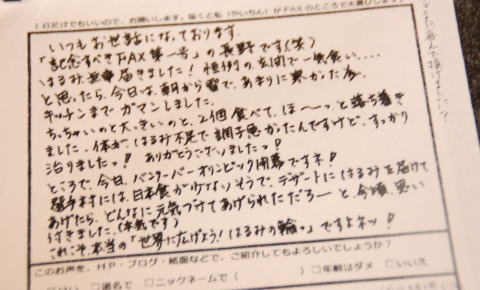 1行だけでもいいので、お願いします。届くと私（やいちん）がFAXのところで大喜びします
いつもお世話になっております。
「記念すべきFAX第一号」の長野です(笑)
はるみ 届きました！ 恒例の玄関で一気食い‥‥
と思ったら、今日は、朝から雪で、あまりに寒かった為
キッチンまでガマンしました。
ちっちゃいのと大きいのと、2個食べて、ほ〜〜っと落ち着き
ました。体が、はるみ不足で調子悪かったんですけど、すっかり
治りましたっ！ ありがとうございましたっ！
ところで、今日、バンクーバーオリンピック開幕ですネ！
選手村には、日本食が少ないそうで、デザートにはるみを届けて
あげたら、どんなに元気づけてあげられただろーと、今頃、思い
付きました。(本気です)
これこそ、本当の「世界に広げよう！はるみの輪っ」ですよネッ！
このお声を、HP・ブログ・紙面などで、ご紹介してもよろしいでしょうか？
□匿名で □ニックネームで（ ） □年齢はダメ □いいえ